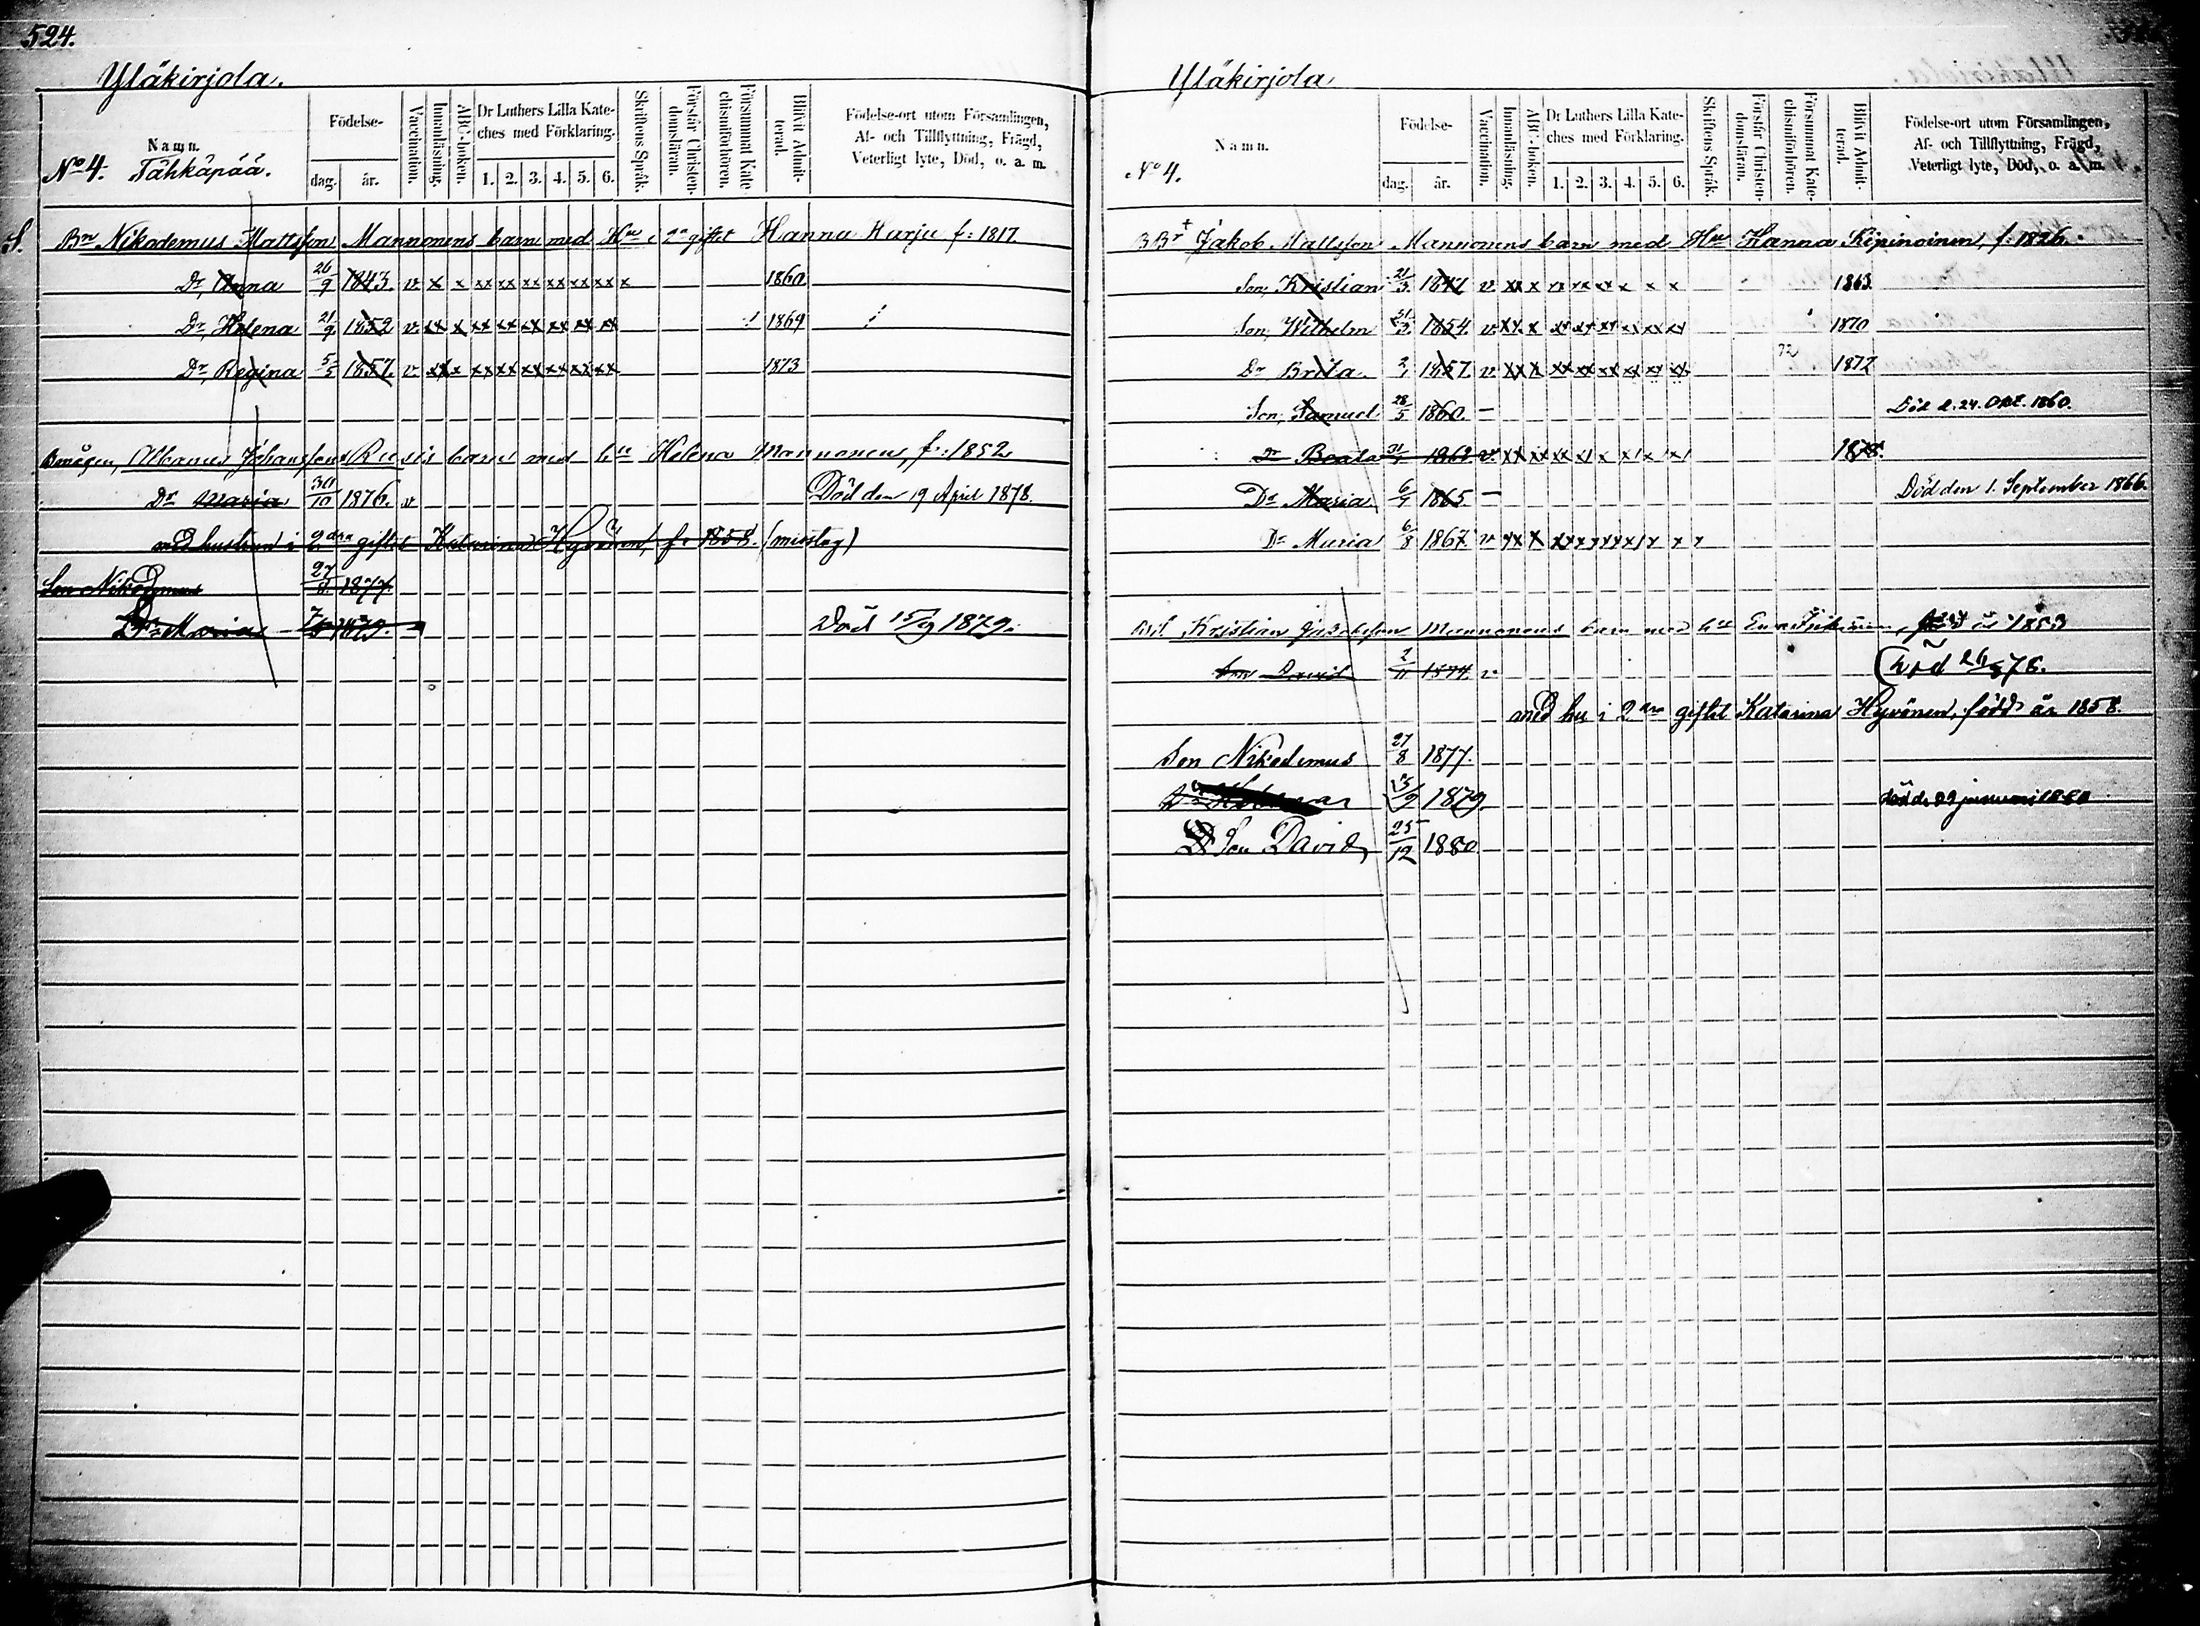 524.
Yläkirjola.
Namn.
No 4. Tähkäpää.
Födelse-
dag. år.
Vaccination.
Innanläsning.
ABC-boken.
Dr Luthers Lilla Kate-
ches med Förklaring.
1. 2. 3. 4. 5. 6.
Skriftens Språk.
Förstår Christen-
domsläran.
Försummat Kate-
chismiförhören.
Blivit Admit-
terad.
Födelse-ort utom Församlingen,
Af- och Tillflyttning, Frägd,
Veterligt lyte, Död, o. a. m.
S. Bn Nikodemus Mattsson Mannonens barn med Hu i 2a giftet Hanna Harju f: 1817.
Dr, Anna 26/9 1843. v x x xx xx xx xx xx xx x 1860
Dr, Helena 21/9 1852 v xx x xx xx xx xx xx xx 1869
Dr, Regina 5/5 1857. v xx x xx xx xx xx xx xx 1873
Albanus Johansson Rusis barn med hu Helena Mannonen, f: 1852
Dr Maria 30/10 1876. v Död den 19 April 1878.
med hustrun i 2dra giftet Katarina Hyvönen, f. 1858. (misstag)
Son Nikodemus 27/8 1877.
Dr Maria 1879. Död 15/9 1879.
Yläkirjola
Namn.
No 4.
Födelse-
dag. år.
Vaccination.
Innanläsning.
ABC-boken.
Dr Luthers Lilla Kate-
ches med Förklaring.
1. 2. 3. 4. 5. 6.
Skriftens Språk.
Förstår Christen-
domsläran.
Försummat Kate-
chismiförhören.
Blivit Admit-
terad.
Födelse-ort utom Församlingen,
Af- och Tillflyttning, Frägd,
Veterligt lyte, Död, o. a. m.
BBr Jakob Mattsson Mannonens barn med Hu Hanna Kipinoinen, f: 1826.
Son, Kristian 21/3 1847 v xx x xx xx xx x x x 1863
Son, Wilhelm 31/3 1854. v xx x xx xx xx xx xx xx 1870
Dr Brita 1857. v xx x xx xx xx xx xx xx 72 1872
Son, Samuel 28/5 1860. — Död d. 24. Okt. 1860.
Dr Beata 1862 v 1878.
Dr Maria 6/7 1865 — Död den 1. September 1866.
Dr Maria 6/8 1867. v
Kristian Jakobsson Mannonens barn med hu Eva 1853
Son David 2/11 1874. v (död 26/3 78.
med hu i 2dra giftet Katarina Hyvönen, född år 1858.
Son Nikodemus 27/8 1877.
Dr 1879. död d. 29 januari 1880
Son David 25/12 1880